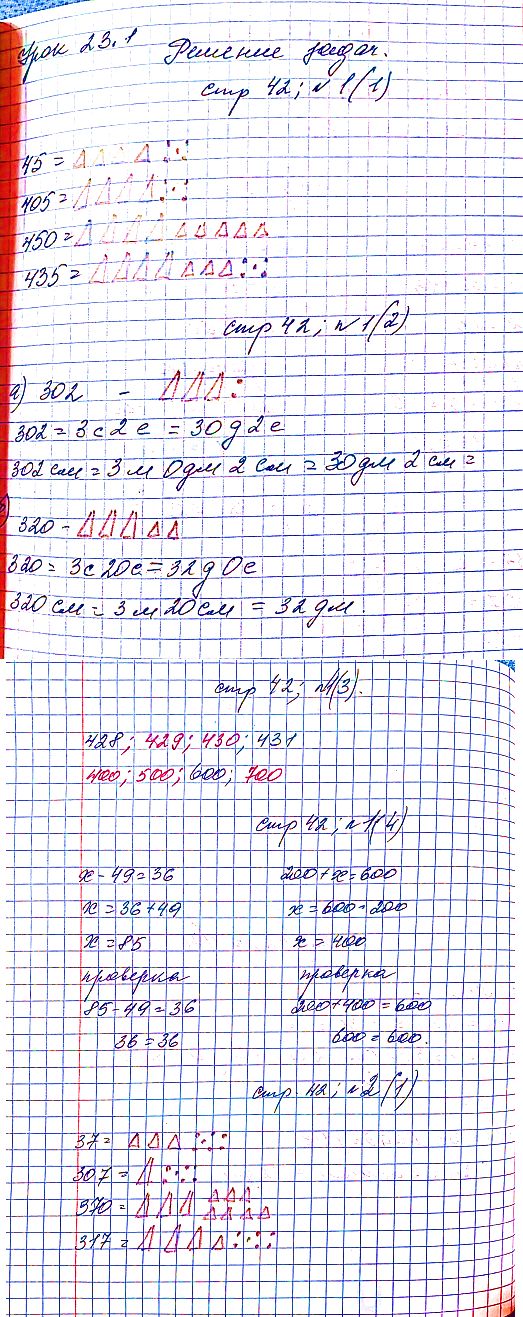 Урок 23.1 Решение задач.
стр 42; №1(1)
45 =
405 =
450 =
435 =
стр 42; №1(2)
а) 302 -
302 = 3с 2е = 30д 2е
302 см = 3 м 0дм 2 см = 30дм 2 см =
320 -
320 = 3с 20е = 32д 0е
320 см = 3 м 20 см = 32 дм.
стр 42; №1(3).
428; 429; 430; 431
400; 500; 600; 700
стр 42; №1(4)
х - 49 = 36 200 + х = 600
х = 36 + 49 х = 600 - 200
х = 85 х = 400
проверка проверка
85 - 49 = 36 200 + 400 = 600
36 = 36 600 = 600.
стр. 42; №2(1)
37 =
307 =
370 =
317 =